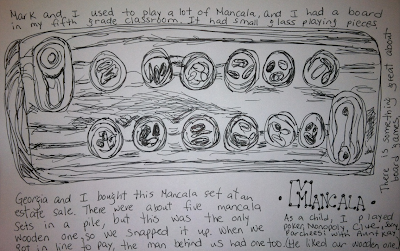 Mark and I used to play a lot of Mancala, and I had a board
in my fifth grade classroom. It had small glass playing pieces.
There is something great about
board games.
Georgia and I bought this Mancala set at an
estate sale. There were about five mancala
sets in a pile, but this was the only
wooden one, so we snapped it up. When we
got in line to pay, the man behind us had one too. He liked our wooden one
MANCALA
As a child, I played
poker, Monopoly, Clue,
Parcheesi with Aunt Kay.